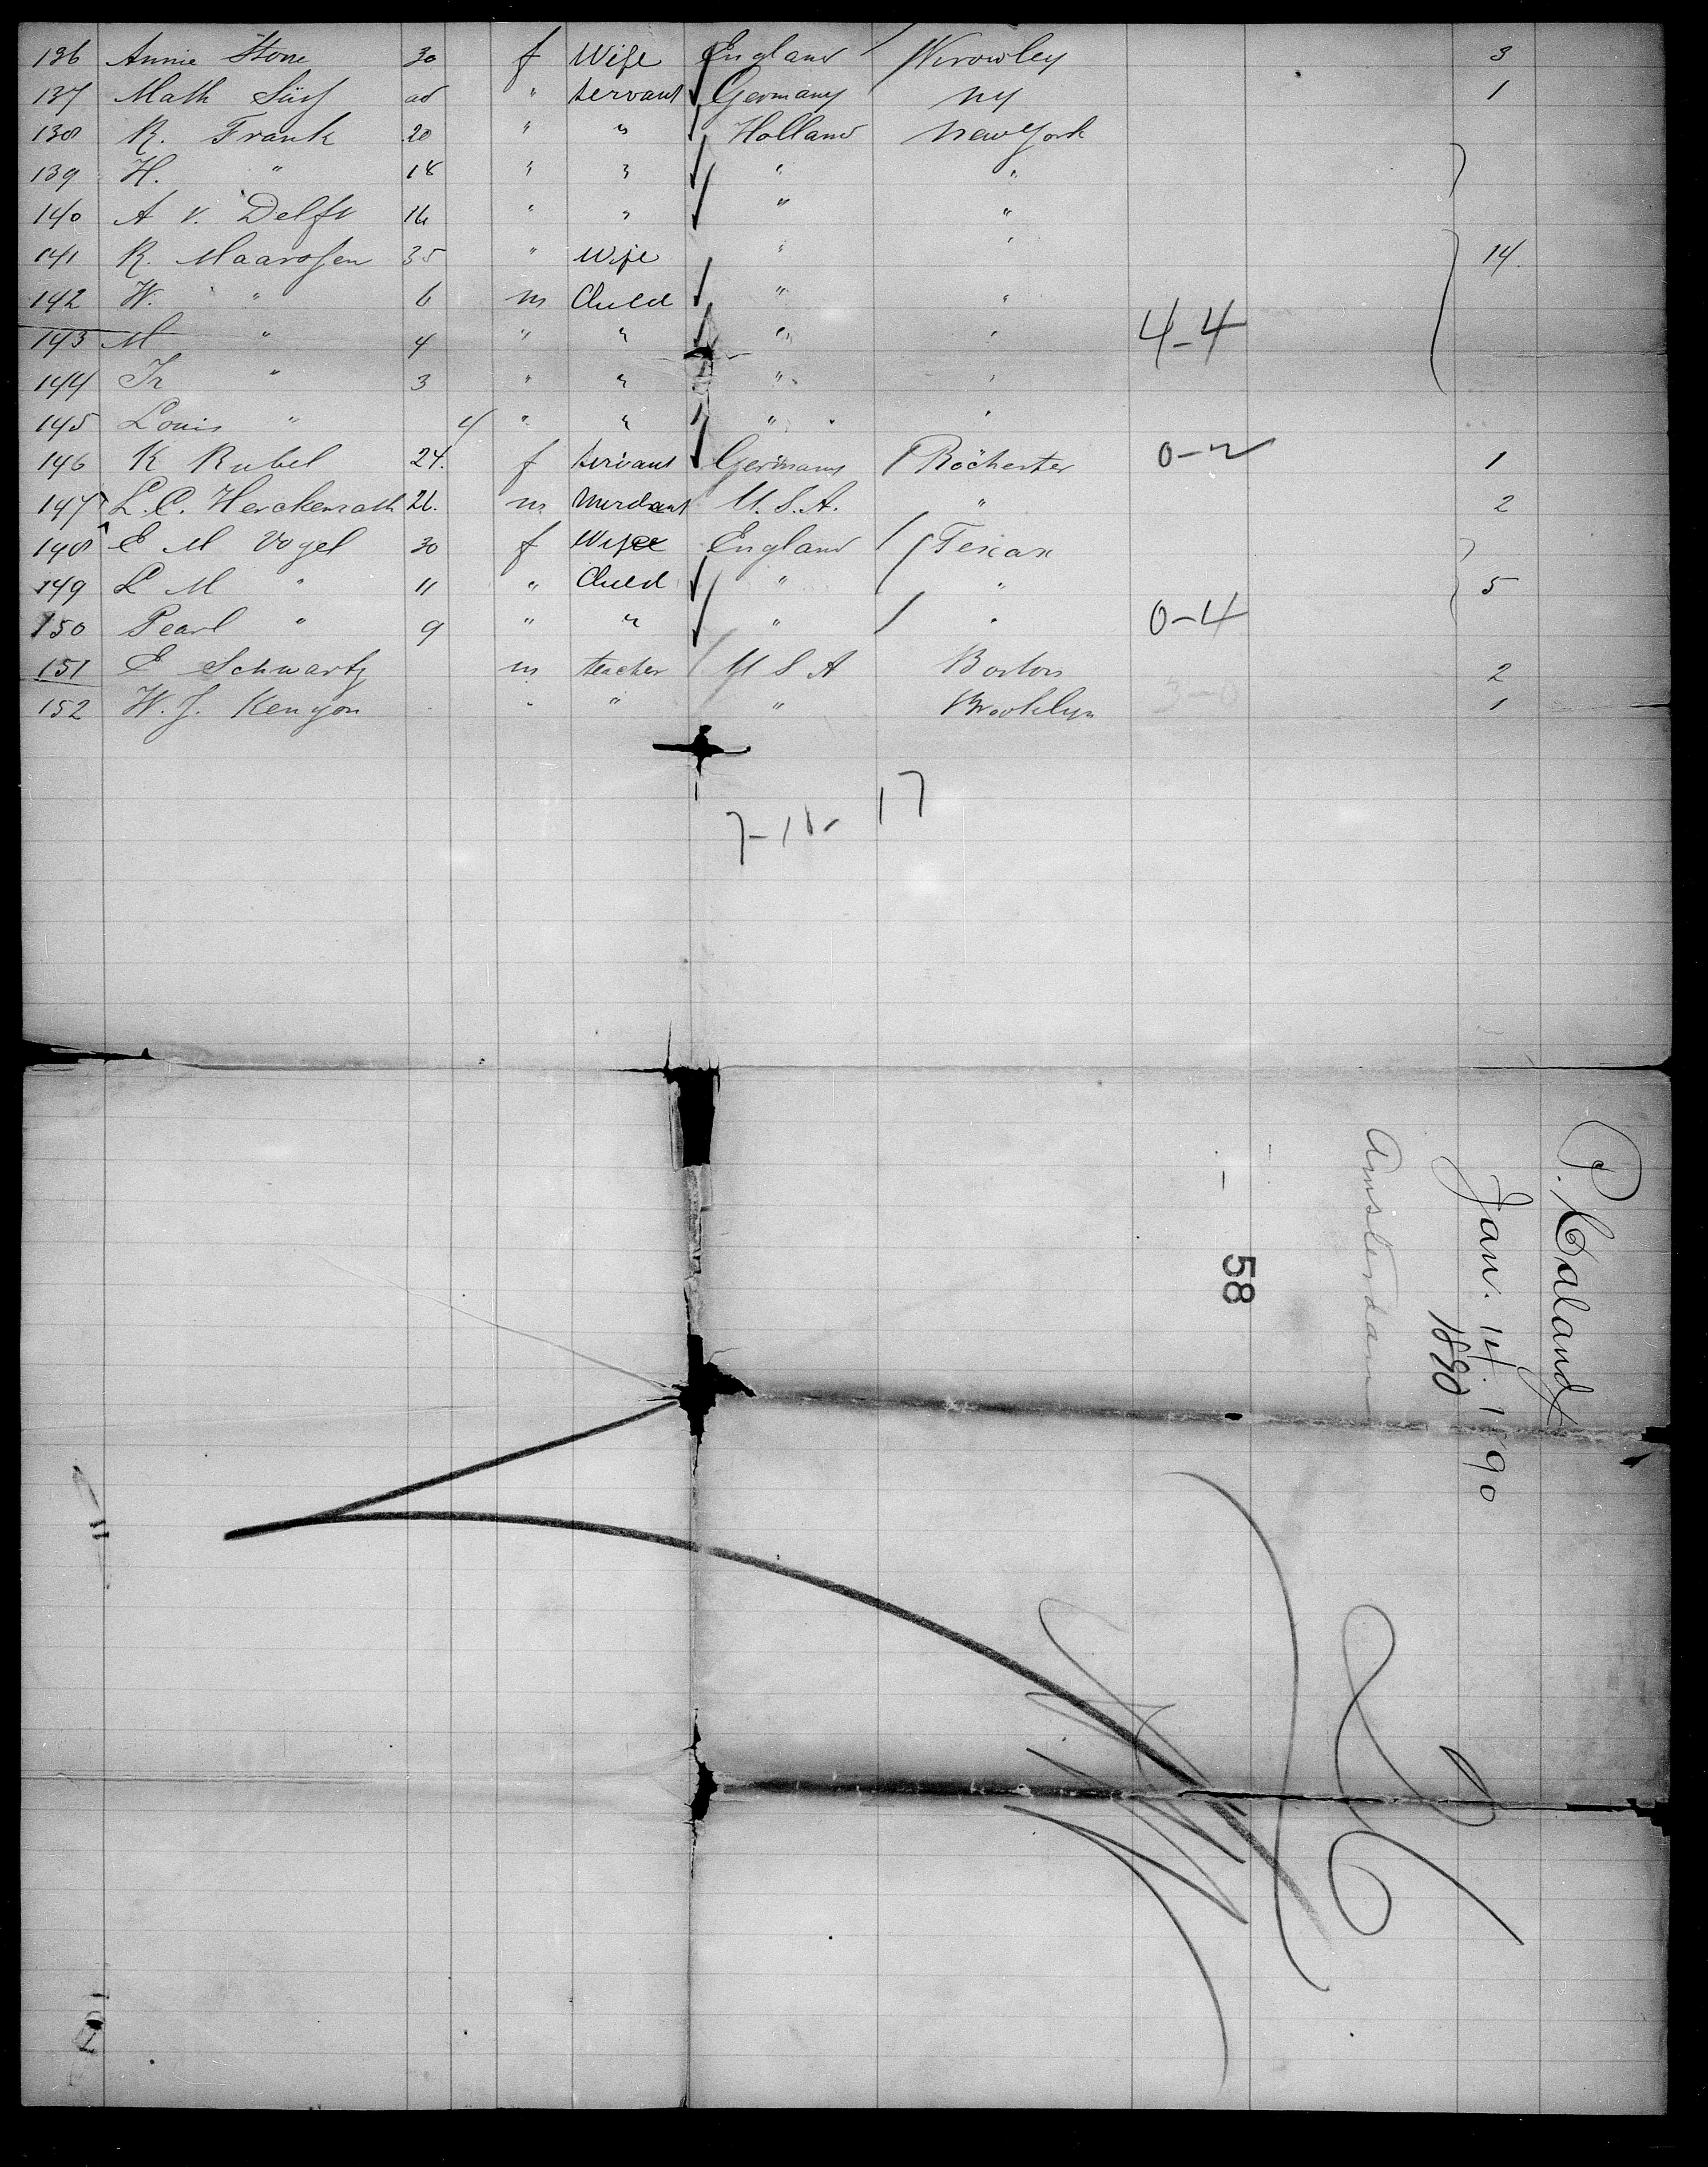 136 Annie Stone 30 f Wife England 3
137 Math Süss ad " Servant Germany NY 1
138 R. Frank 20 " " Holland New York
139 H. " 18 " " " "
140 A v. Delft 16 " " " "
141 R. Maarssen 35 " Wife " " 14.
142 W. " 6 m Child " "
143 M " 4 " " " " 4-4
144 " 3 " " " "
145 Louis " 4 " " " "
146 K Rubel 24. f Servant Germany Rochester 0-2 1
147 L. C. Herckenrath 26. m Merchant U. S. A. " 2
148 E M Vogel 30 f Wife England Texas
149 L M " 11 " Child " " 5
150 Pearl " 9 " " " " 0-4
151 E Schwartz m teacher U S A Boston 2
152 W. J. Kenyon " " " Brooklyn 3-0 1
17
P. Caland
Jan. 14. 1890
1890
Amsterdam
58